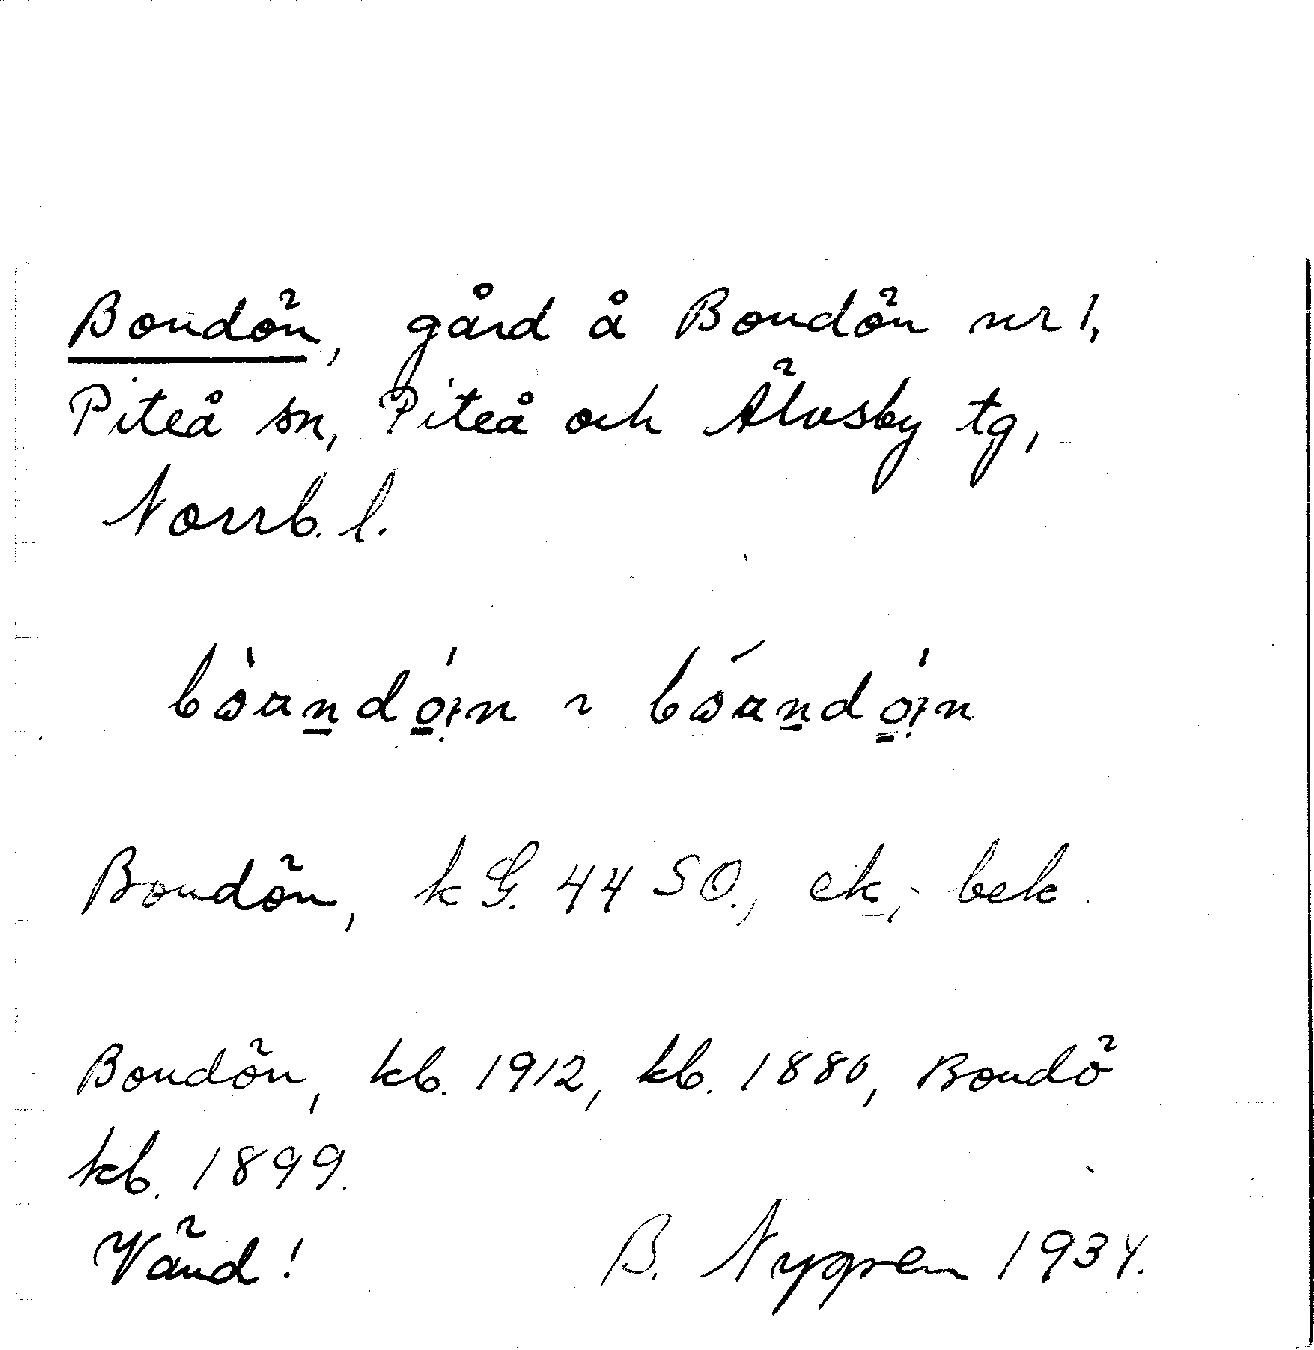 Bondön, gård å Bondön nr 1,
Piteå sn, Piteå och Älvsby tg,
Norrb. l.
Bondön, kG. 44 SO., ek., bek.
Bondön, kb. 1912, kb. 1880, Bondö
kb. 1899.
Vänd! B. Nygren 1934.